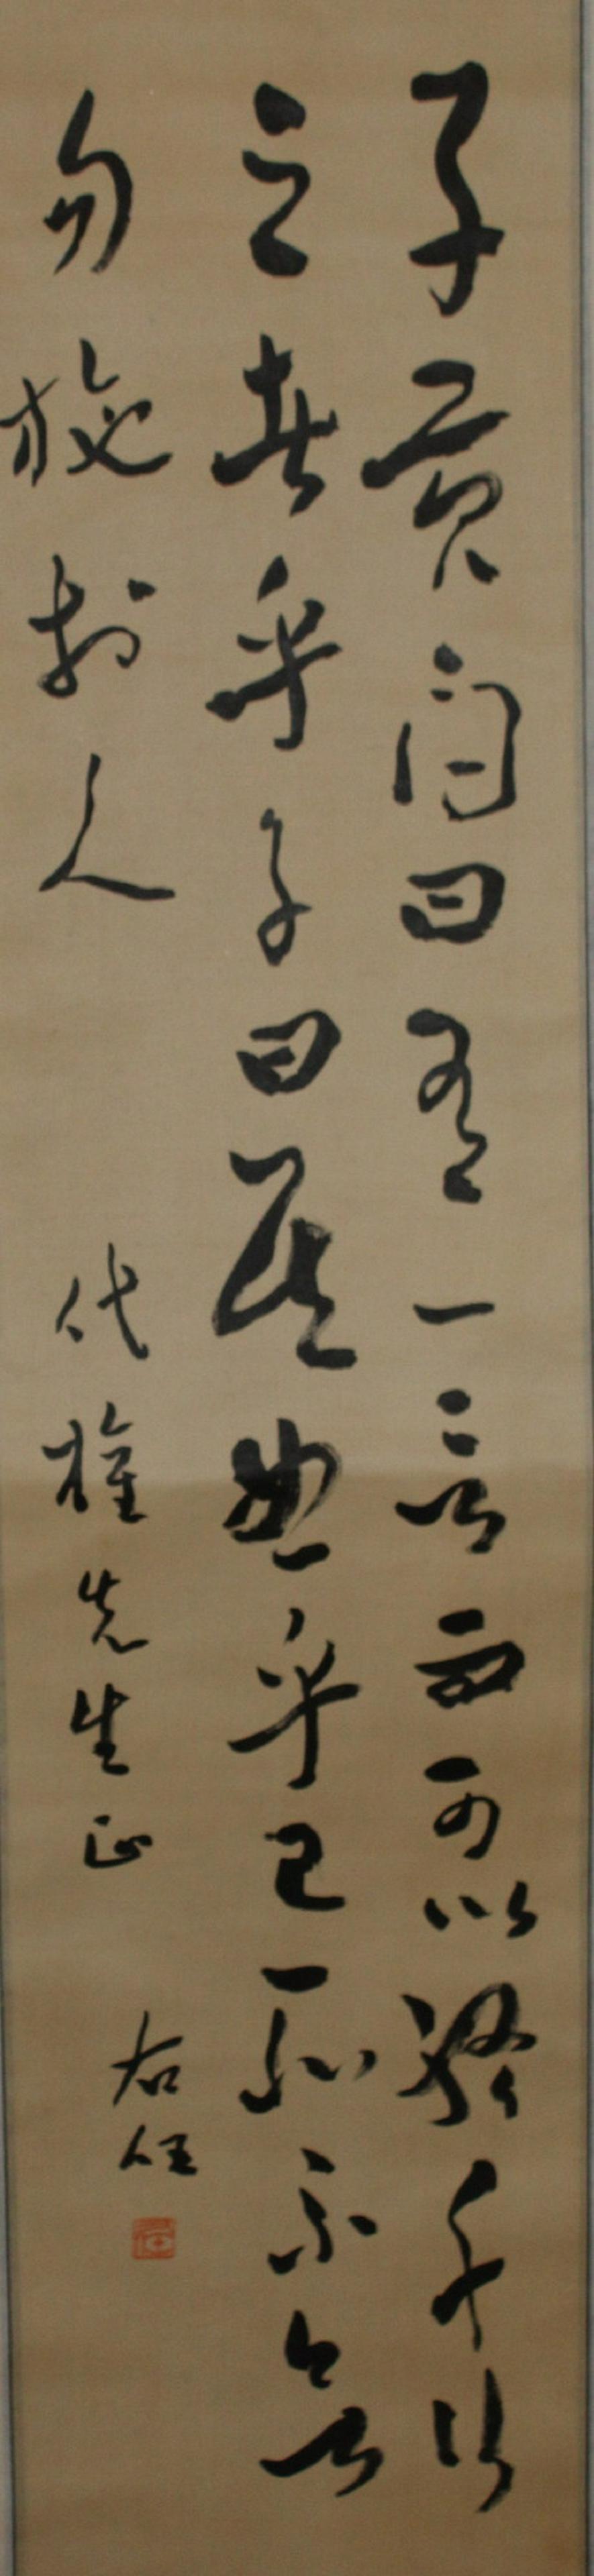 子貢問曰有一言而可以終身行
之者乎子曰其恕乎己所不欲
勿施於人
代權先生正
右任